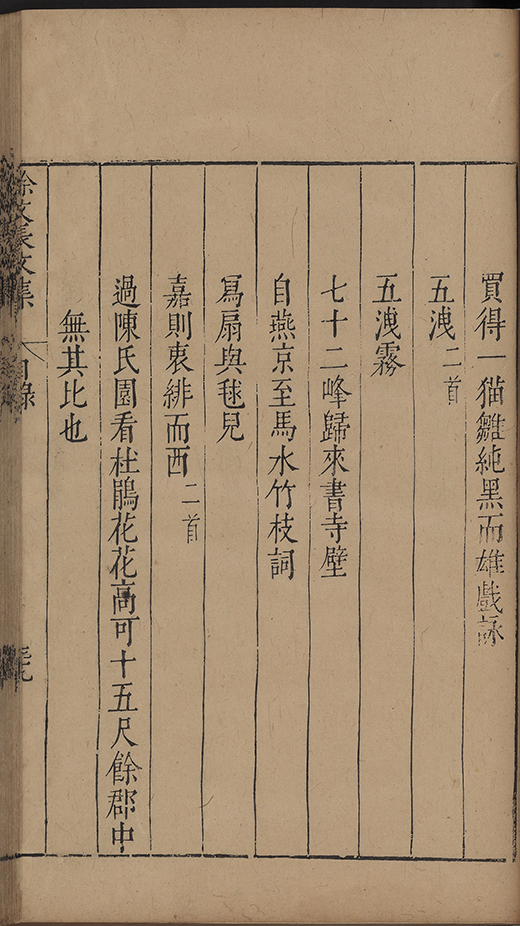 買得一猫雛純黑而雄戲詠
五洩二首
五洩霧
七十二峰歸來書寺壁
自燕京至馬水竹枝詞
寫扇與毬兒
嘉則衷緋而西二首
過陳氏園看杜鵑花花高可十五尺餘郡中
無其比也
徐文長文集 目錄